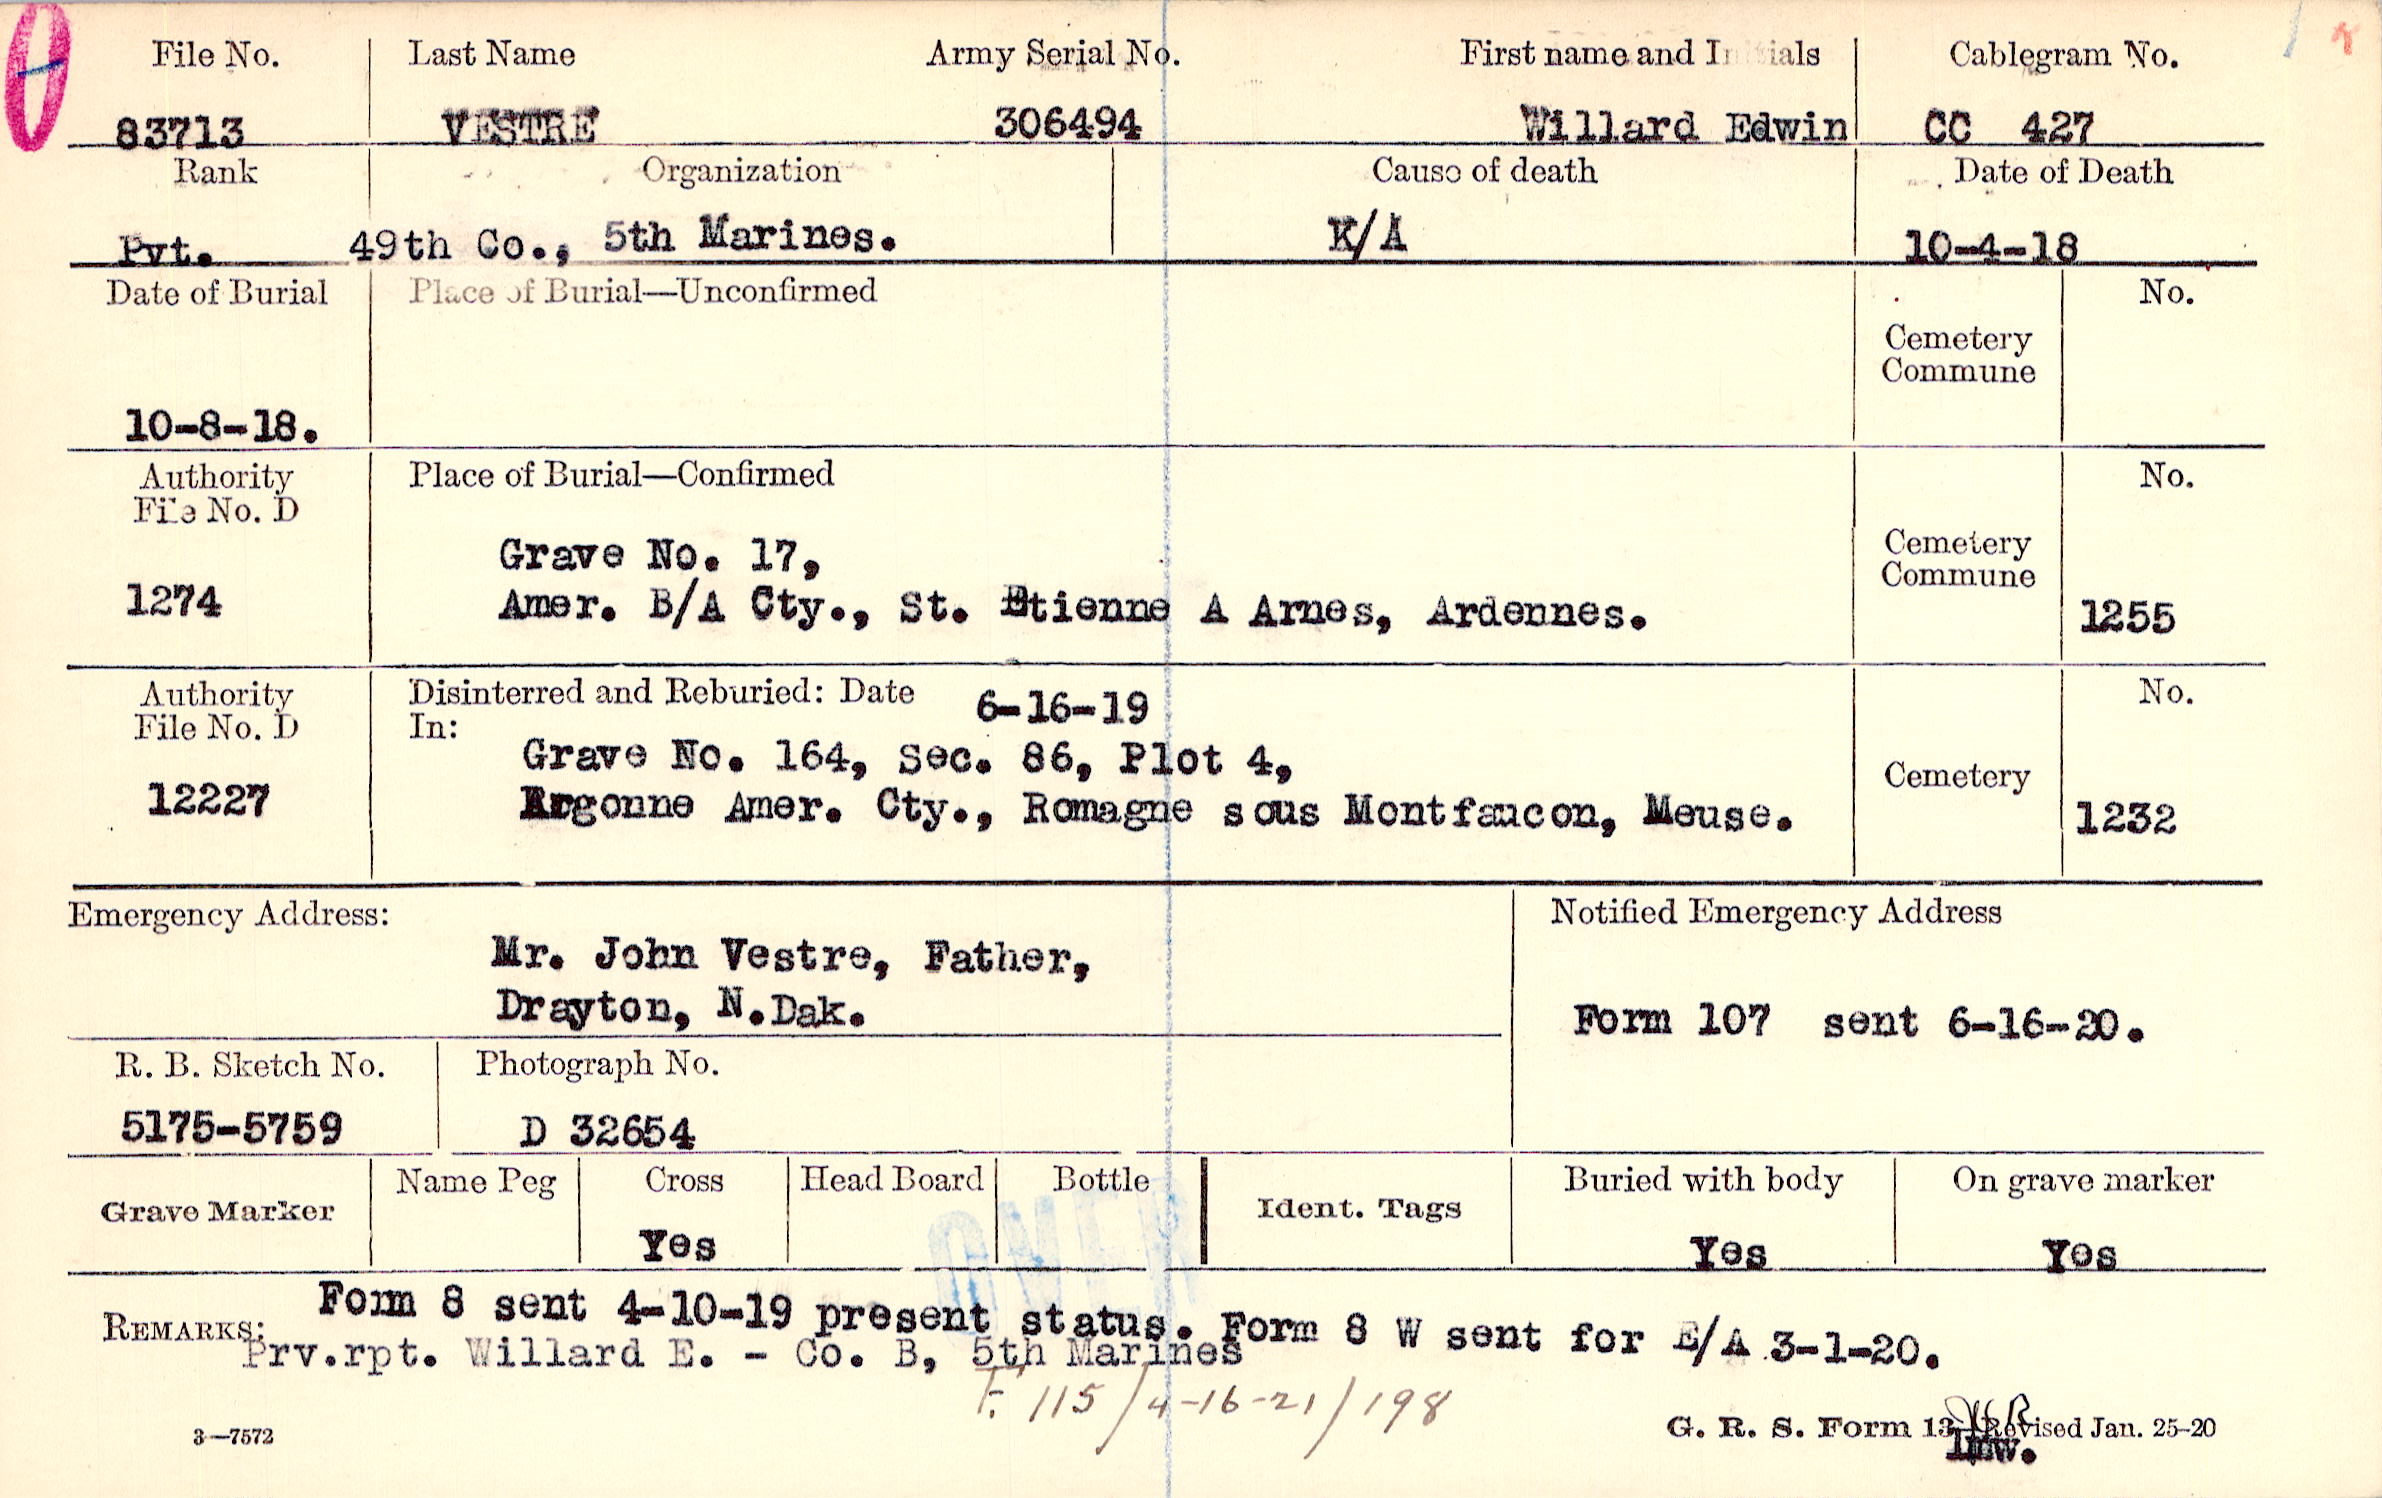 File No. Last Name Army Serial No. First name and Initials Cablegram No.
83713 VESTRE 306494 Willard Edwin CC 427
Rank Organization Cause of death Date of Death
Pvt. 49th Co., 5th Marines. K/A 10-4-18
Date of Burial Place of Burial—Unconfirmed No.
Cemetery
Commune
10-8-18.
Authority Place of Burial—Confirmed No.
File No. D
Grave No. 17, Cemetery
Commune
1274 Amer. B/A Cty., St. Etienne A Arnes, Ardennes. 1255
Authority Disinterred and Reburied: Date 6-16-19 No.
File No. D In:
Grave No. 164, Sec. 86, Plot 4, Cemetery
12227 Argonne Amer. Cty., Romagne sous Montfaucon, Meuse. 1232
Emergency Address: Notified Emergency Address
Mr. John Vestre, Father,
Drayton, N.Dak. Form 107 sent 6-16-20.
R. B. Sketch No. Photograph No.
5175-5759 D 32654
Grave Marker Name Peg Cross Head Board Bottle Ident. Tags Buried with body On grave marker
Yes Yes Yes
OVER
REMARKS: Form 8 sent 4-10-19 present status. Form 8 W sent for E/A 3-1-20.
Prv.rpt. Willard E. - Co. B, 5th Marines
F. 115/4-16-21/198
3—7572 G. R. S. Form 13 Revised Jan. 25-20